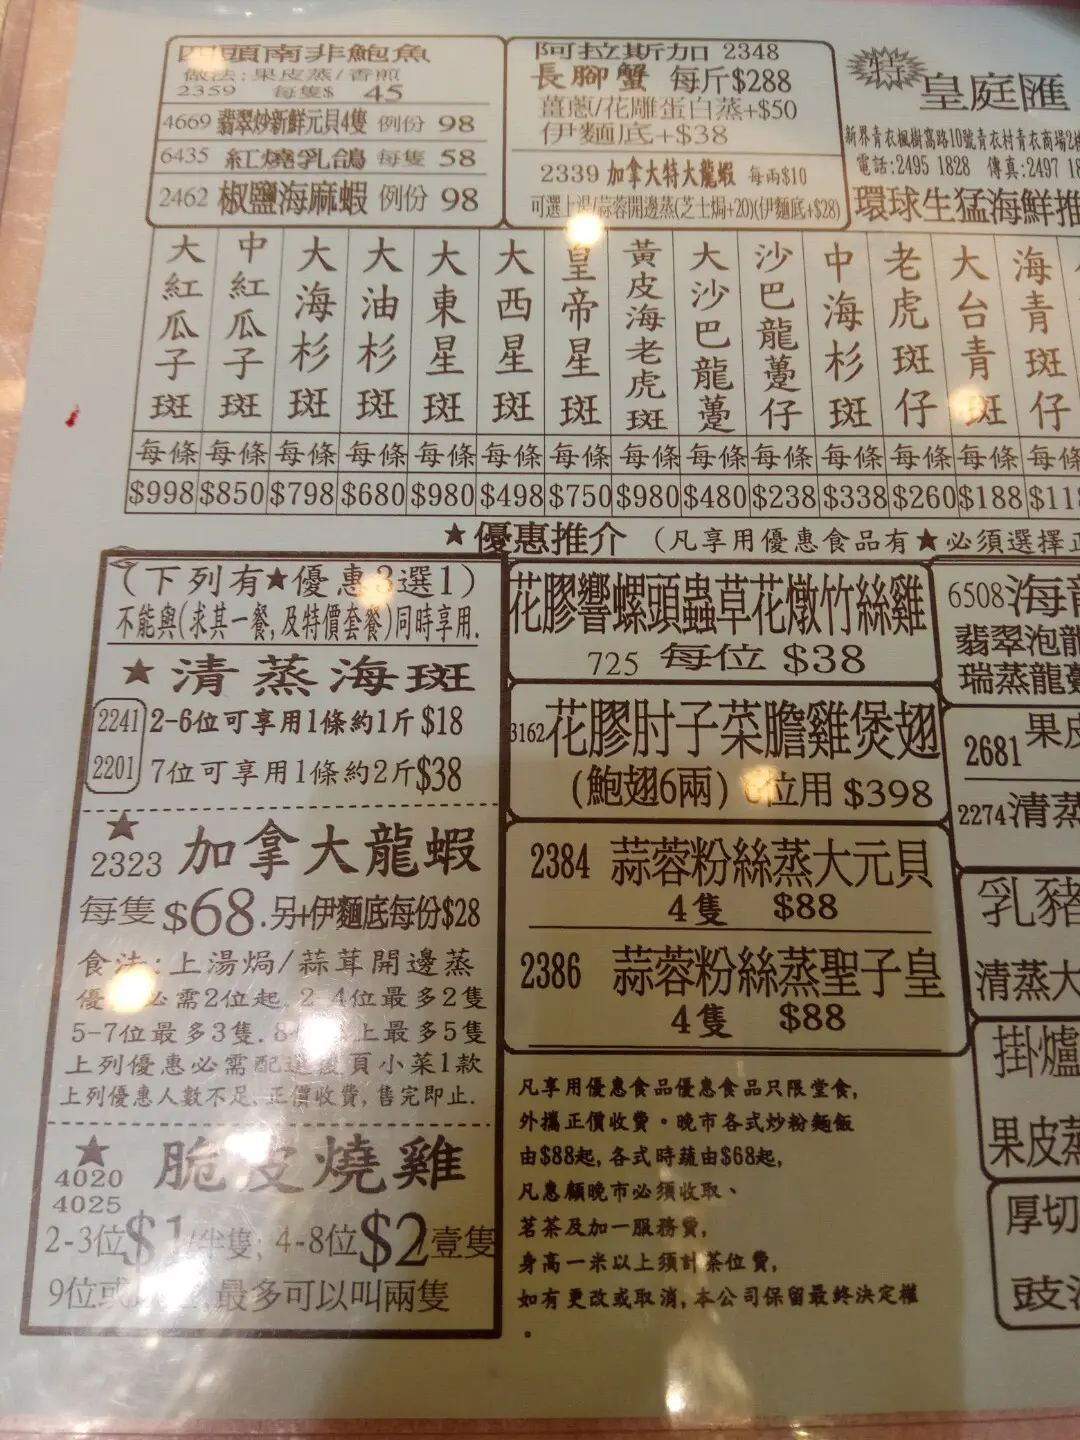 四頭南非鮑魚
做法:果皮蒸/香煎
2359 每隻$ 45
4669 翡翠炒新鮮元貝4隻 例份 98
6435 紅燒乳鴿 每隻 58
2462 椒鹽海麻蝦 例份 98
阿拉斯加 2348
長腳蟹 每斤$288
薑蔥/花雕蛋白蒸+$50
伊麵底+$38
2339 加拿大特大龍蝦 每兩$10
可選上湯/蒜蓉開邊蒸(芝士焗+20)(伊麵底+$28)
特 皇庭匯
新界青衣楓樹窩路10號青衣村青衣商場2樓
電話:2495 1828 傳真:2497 18
環球生猛海鮮推
大紅瓜子斑 每條 $998
中紅瓜子斑 每條 $850
大海杉斑 每條 $798
大油杉斑 每條 $680
大東星斑 每條 $980
大西星斑 每條 $498
皇帝星斑 每條 $750
黃皮海老虎斑 每條 $980
大沙巴龍躉 每條 $480
沙巴龍躉仔 每條 $238
中海杉斑 每條 $338
老虎斑仔 每條 $260
大台青斑 每條 $188
海青斑仔 每條 $11
★優惠推介 (凡享用優惠食品有★必須選擇正
(下列有★優惠3選1)
不能與(求其一餐,及特價套餐)同時享用.
★清蒸海斑
2241 2-6位可享用1條約1斤$18
2201 7位可享用1條約2斤$38
★
2323 加拿大龍蝦
每隻$68.另+伊麵底每份$28
食法:上湯焗/蒜茸開邊蒸
優 必需2位起 2-4位最多2隻
5-7位最多3隻.8 上最多5隻
上列優惠必需配選後頁小菜1款
上列優惠人數不足,正價收費,售完即止.
★
4020 脆皮燒雞
4025
2-3位$1/半隻; 4-8位$2/壹隻
9位或 最多可以叫兩隻
花膠響螺頭蟲草花燉竹絲雞
725 每位 $38
3162花膠肘子菜膽雞煲翅
(鮑翅6兩) 6位用 $398
2384 蒜蓉粉絲蒸大元貝
4隻 $88
2386 蒜蓉粉絲蒸聖子皇
4隻 $88
凡享用優惠食品優惠食品只限堂食,
外攜正價收費。晚市各式炒粉麵飯
由$88起,各式時蔬由$68起,
凡惠顧晚市必須收取、
茗茶及加一服務費,
身高一米以上須計茶位費,
如有更改或取消,本公司保留最終決定權
。
6508海龍
翡翠泡龍
瑞蒸龍躉
果皮
2681
2274清蒸
乳豬
清蒸大
掛爐
果皮蒸
厚切
豉油